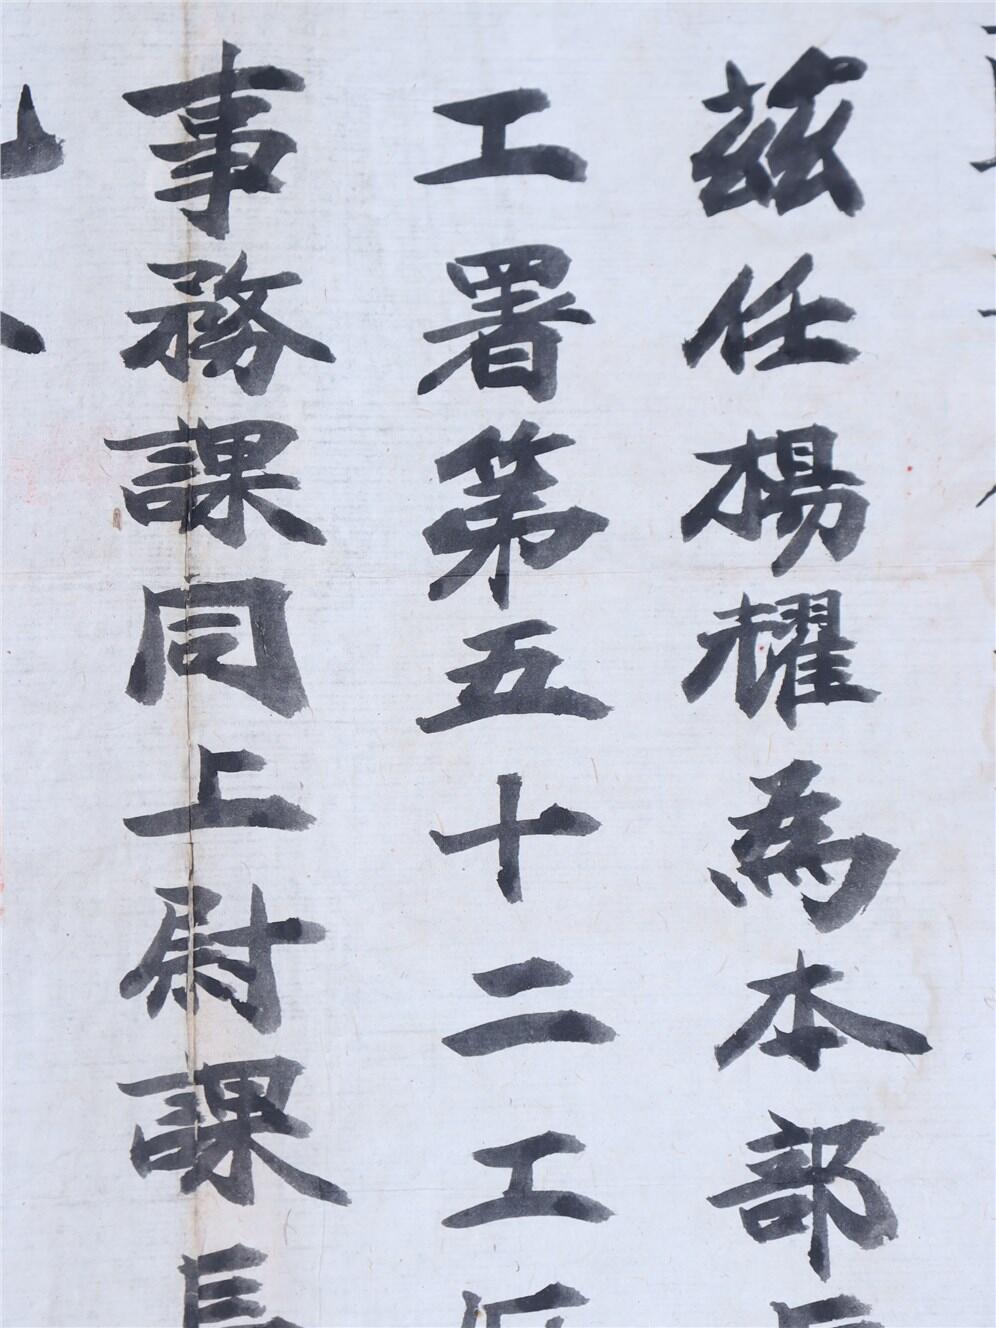 茲任楊耀為本部
工署第五十二工
事務課同上尉課長